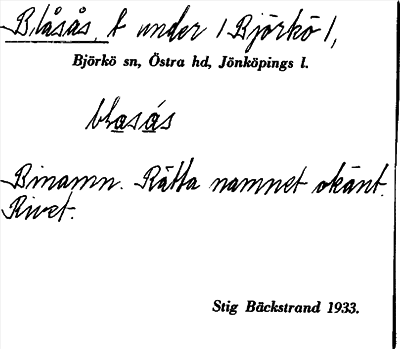 Blåsås, t under /Björkö/,
Björkö sn, Östra hd, Jönköpings l.
blasås
Binamn. Rätta namnet okänt.
Rivet.
Stig Bäckstrand 1933.